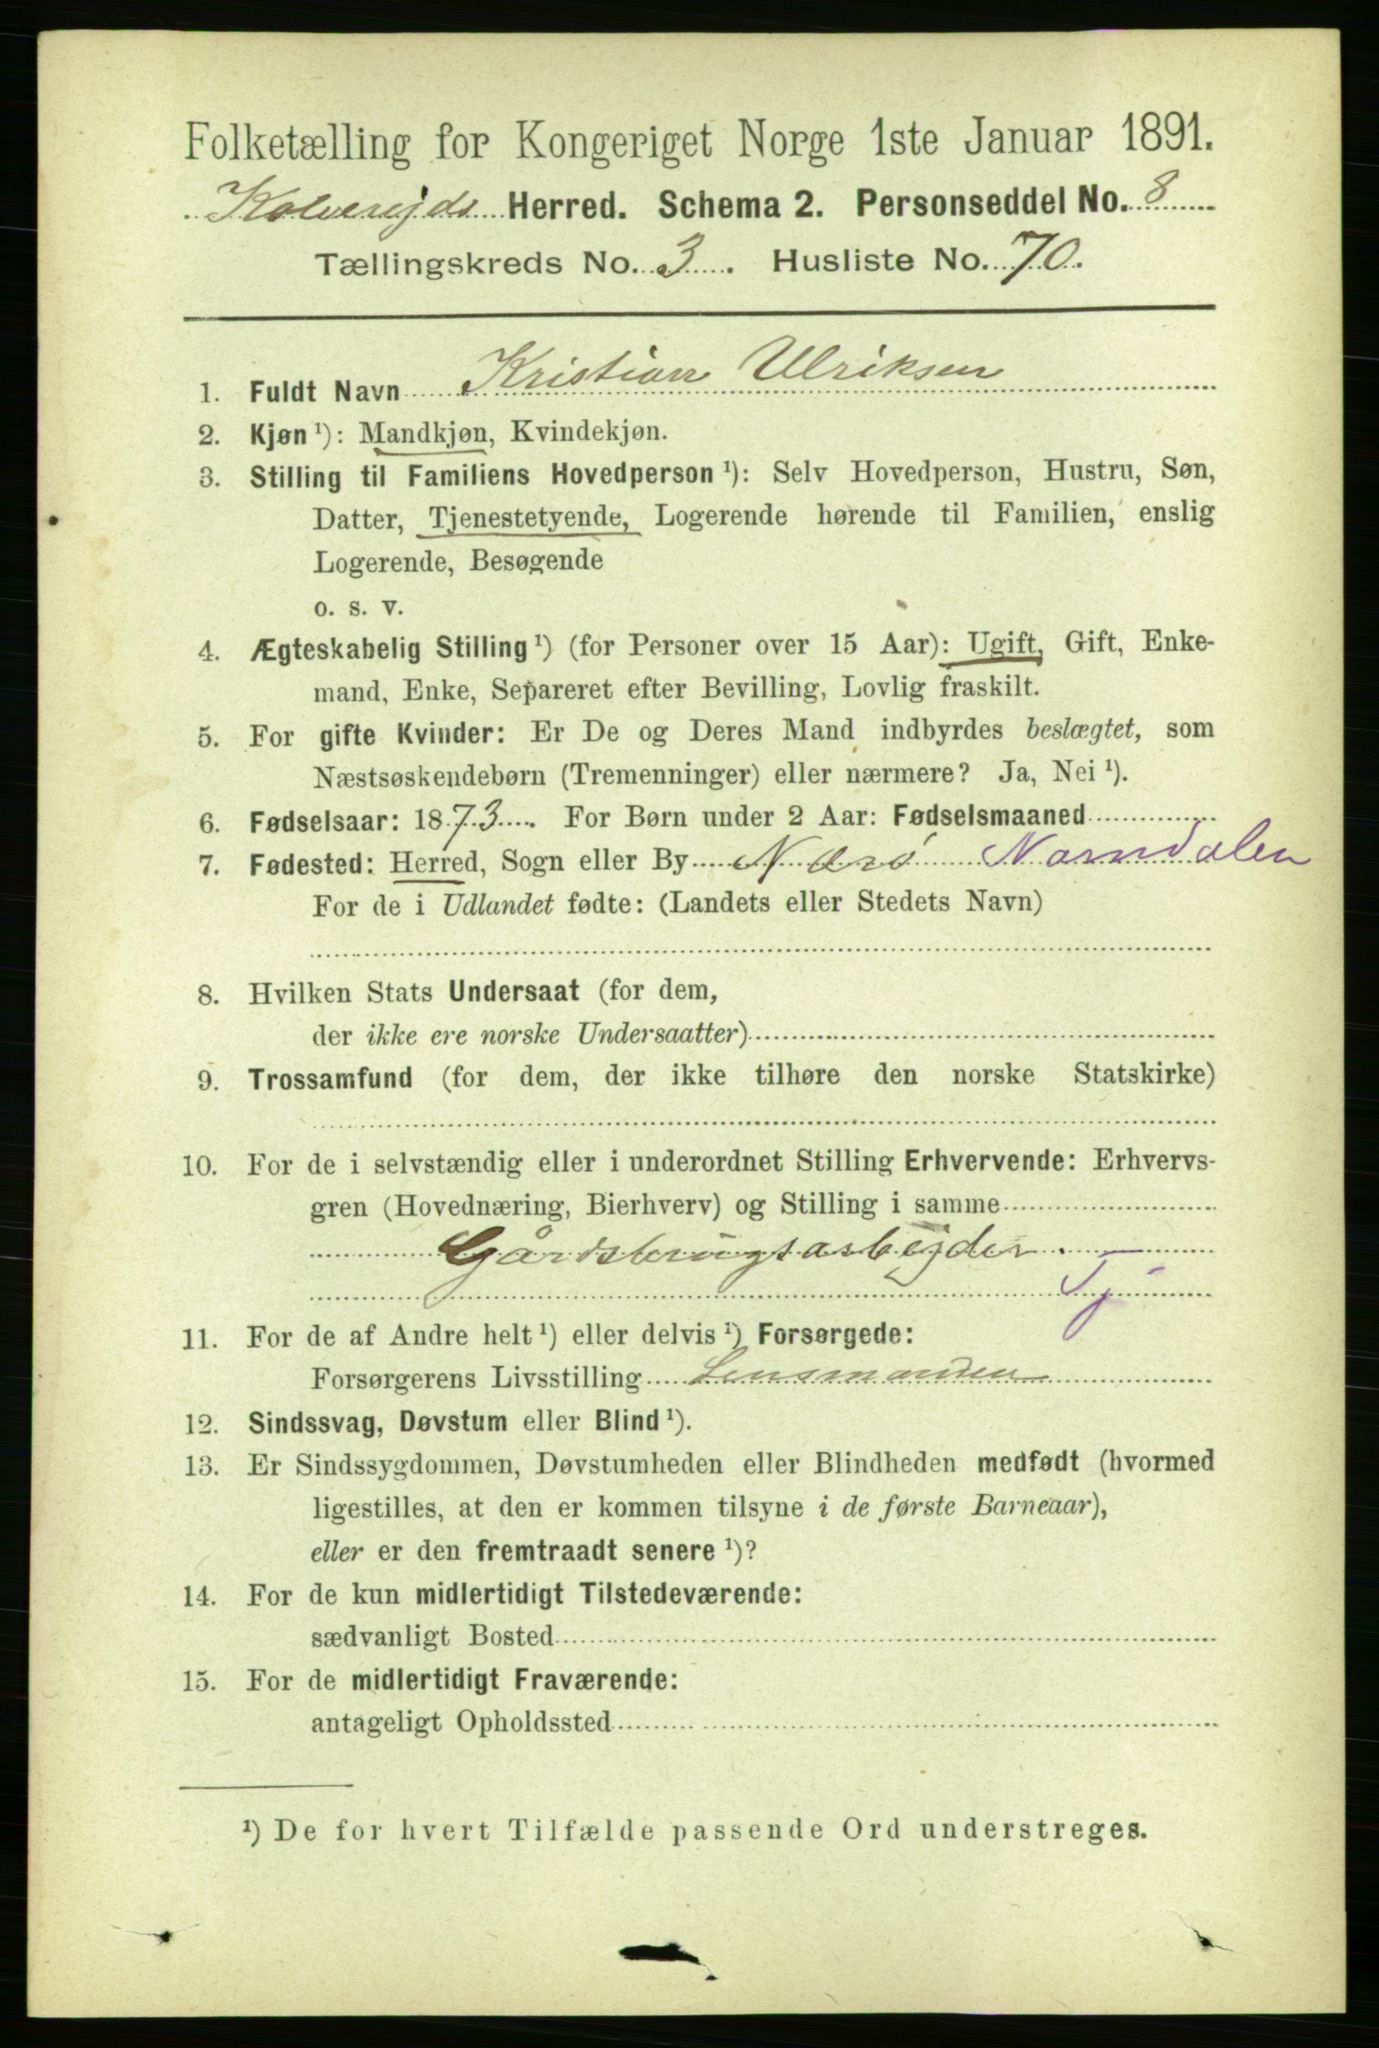 Folketælling for Kongeriget Norge 1ste Januar 1891.
Kolverejds Herred. Schema 2. Personseddel No. 8
Tællingskreds No. 3. Husliste No. 70.
1. Fuldt Navn Kristian Ulriksen
2. Kjøn ¹): Mandkjøn, Kvindekjøn.
3. Stilling til Familiens Hovedperson ¹): Selv Hovedperson, Hustru, Søn,
Datter, Tjenestetyende, Logerende hørende til Familien, enslig
Logerende, Besøgende
o. s. v.
4. Ægteskabelig Stilling ¹) (for Personer over 15 Aar): Ugift, Gift, Enke-
mand, Enke, Separeret efter Bevilling, Lovlig fraskilt.
5. For gifte Kvinder: Er De og Deres Mand indbyrdes beslægtet, som
Næstsøskendebørn (Tremenninger) eller nærmere? Ja, Nei ¹).
6. Fødselsaar: 1873. For Børn under 2 Aar: Fødselsmaaned
7. Fødested: Herred, Sogn eller By Nærø Namdalen
For de i Udlandet fødte: (Landets eller Stedets Navn)
8. Hvilken Stats Undersaat (for dem,
der ikke ere norske Undersaatter)
9. Trossamfund (for dem, der ikke tilhøre den norske Statskirke)
10. For de i selvstændig eller i underordnet Stilling Erhvervende: Erhvervs-
gren (Hovednæring, Bierhverv) og Stilling i samme
Gårdsbrugsarbejder.
Tj
11. For de af Andre helt ¹) eller delvis ¹) Forsørgede:
Forsørgerens Livsstilling Lensmanden
12. Sindssvag, Døvstum eller Blind ¹).
13. Er Sindssygdommen, Døvstumheden eller Blindheden medfødt (hvormed
ligestilles, at den er kommen tilsyne i de første Barneaar),
eller er den fremtraadt senere ¹)?
14. For de kun midlertidigt Tilstedeværende:
sædvanligt Bosted
15. For de midlertidigt Fraværende:
antageligt Opholdssted
¹) De for hvert Tilfælde passende Ord understreges.